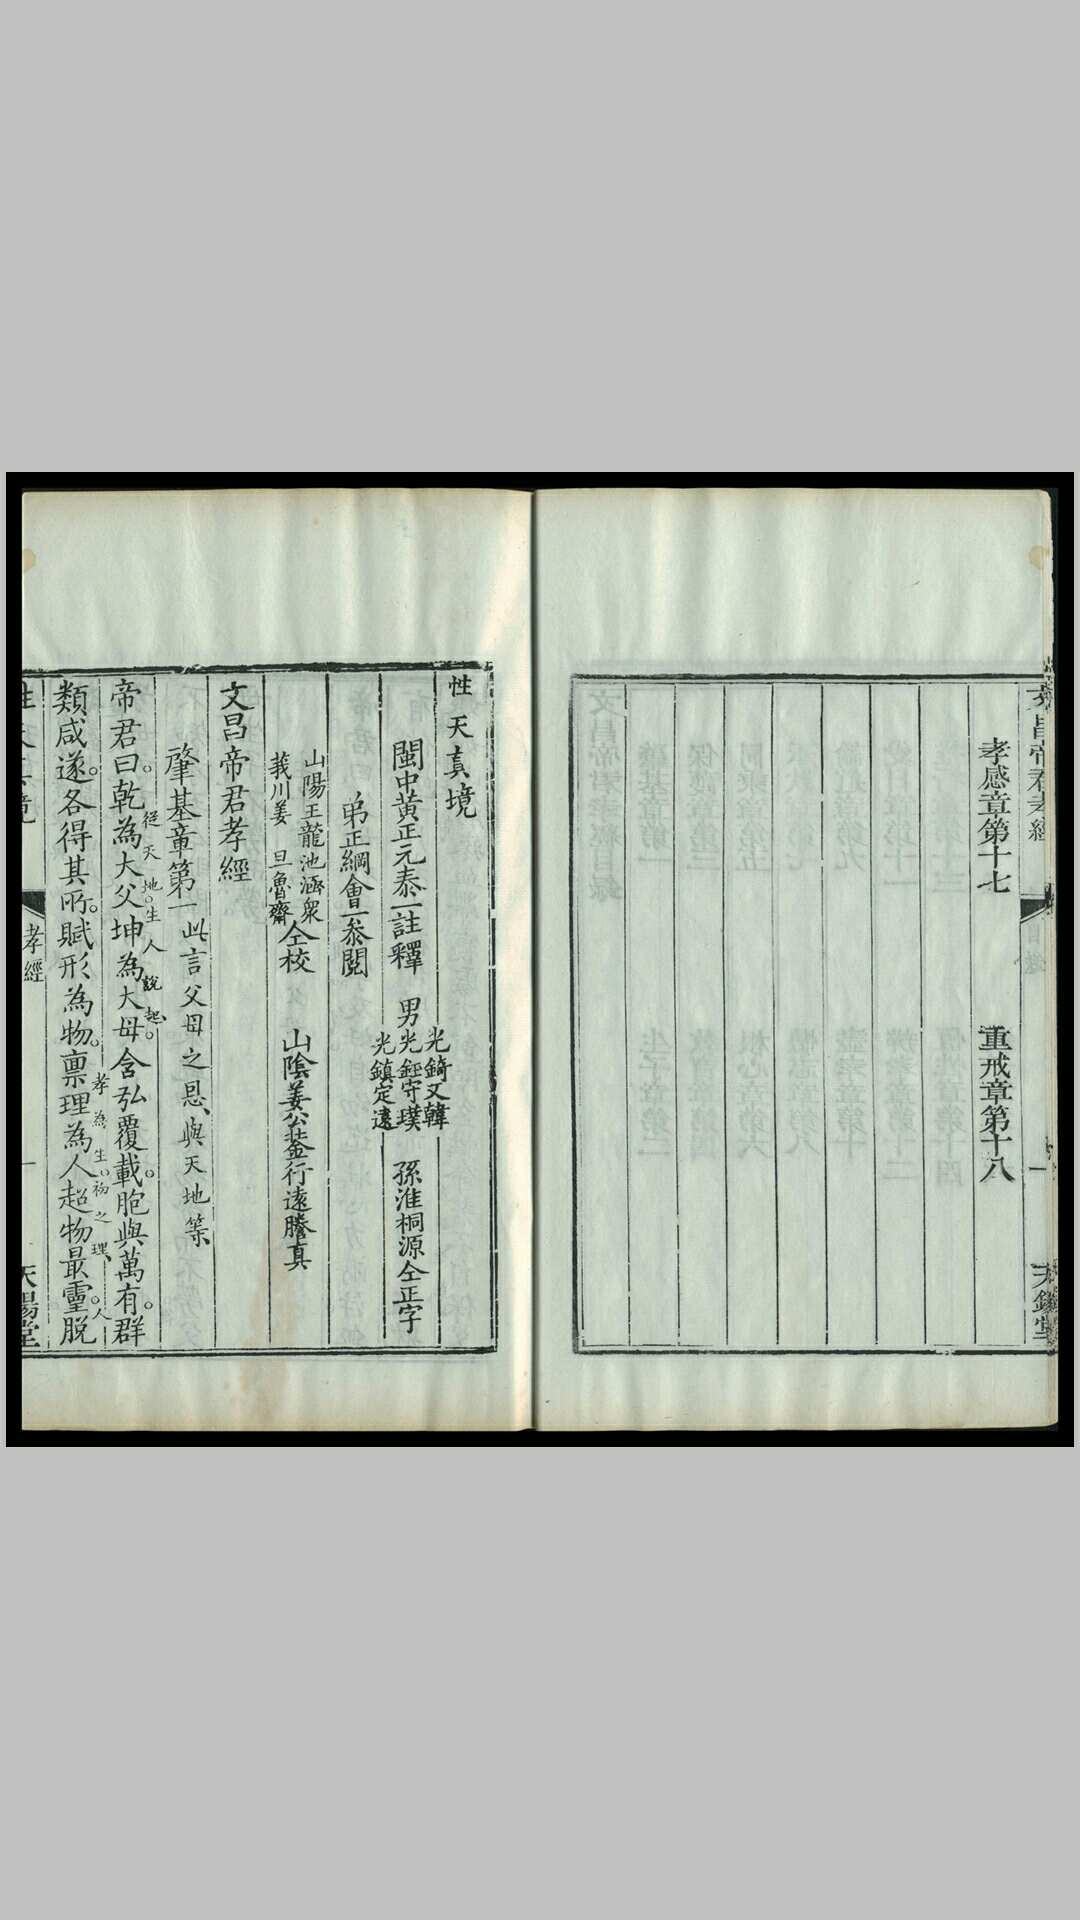 文昌帝君孝經
孝感章第十七　重戒章第十八
一
天錫堂
性天真境
閩中黃正元泰一註釋　男
光錡文韓
光鈺守璞
光鎮定遠
孫淮桐源仝正字
弟正綱會一叅閱
山陽王龍池涵衆
莪川姜旦魯齋
仝校　山陰姜公荃行遠謄真
文昌帝君孝經
肇基章第一　此言父母之恩、與天地等、
帝君曰。乾為大父坤為大母。含弘覆載。胞與萬有。群
從天地。生人說起。
類咸遂。各得其所。賦形為物。禀理為人超物最靈。脫
孝為生物之理、人
性天真境
孝經
一
天錫堂